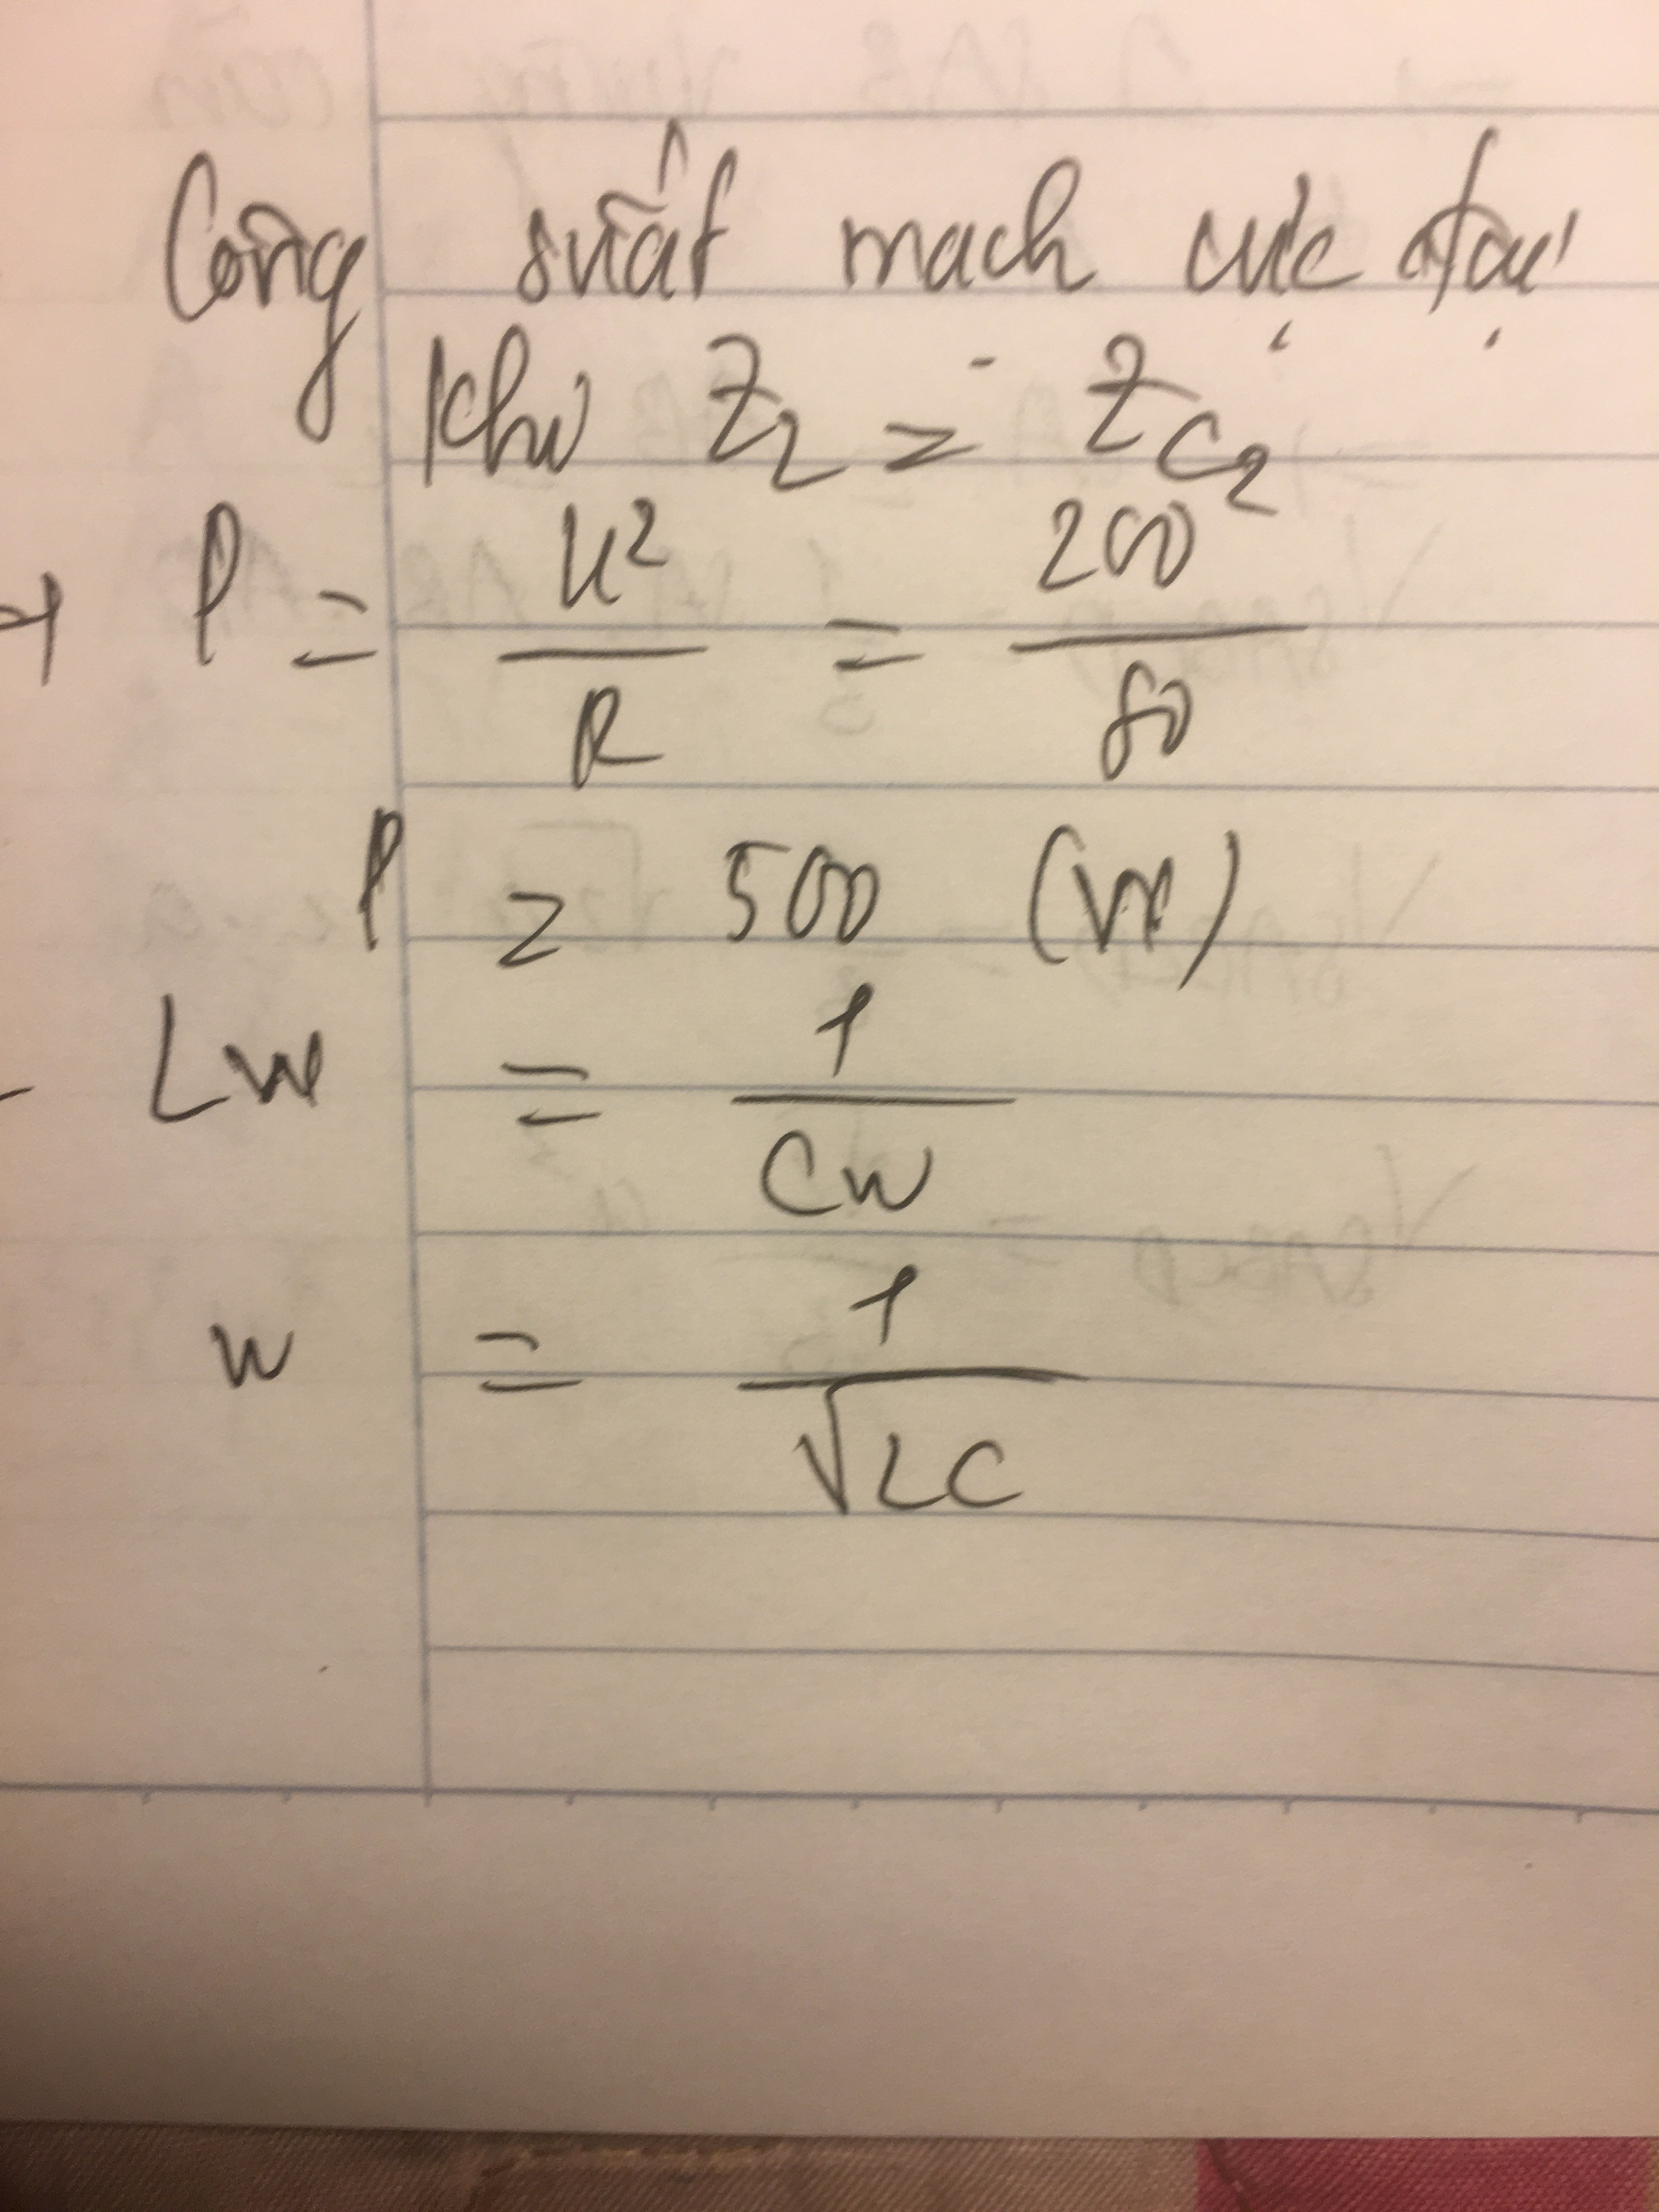 Công suất mạch cực đại
khi Z_L = Z_{C_2}
→ P = \frac{U^2}{R} = \frac{200^2}{80}
P = 500 (W)
- Lw = \frac{1}{Cw}
w = \frac{1}{\sqrt{LC}}